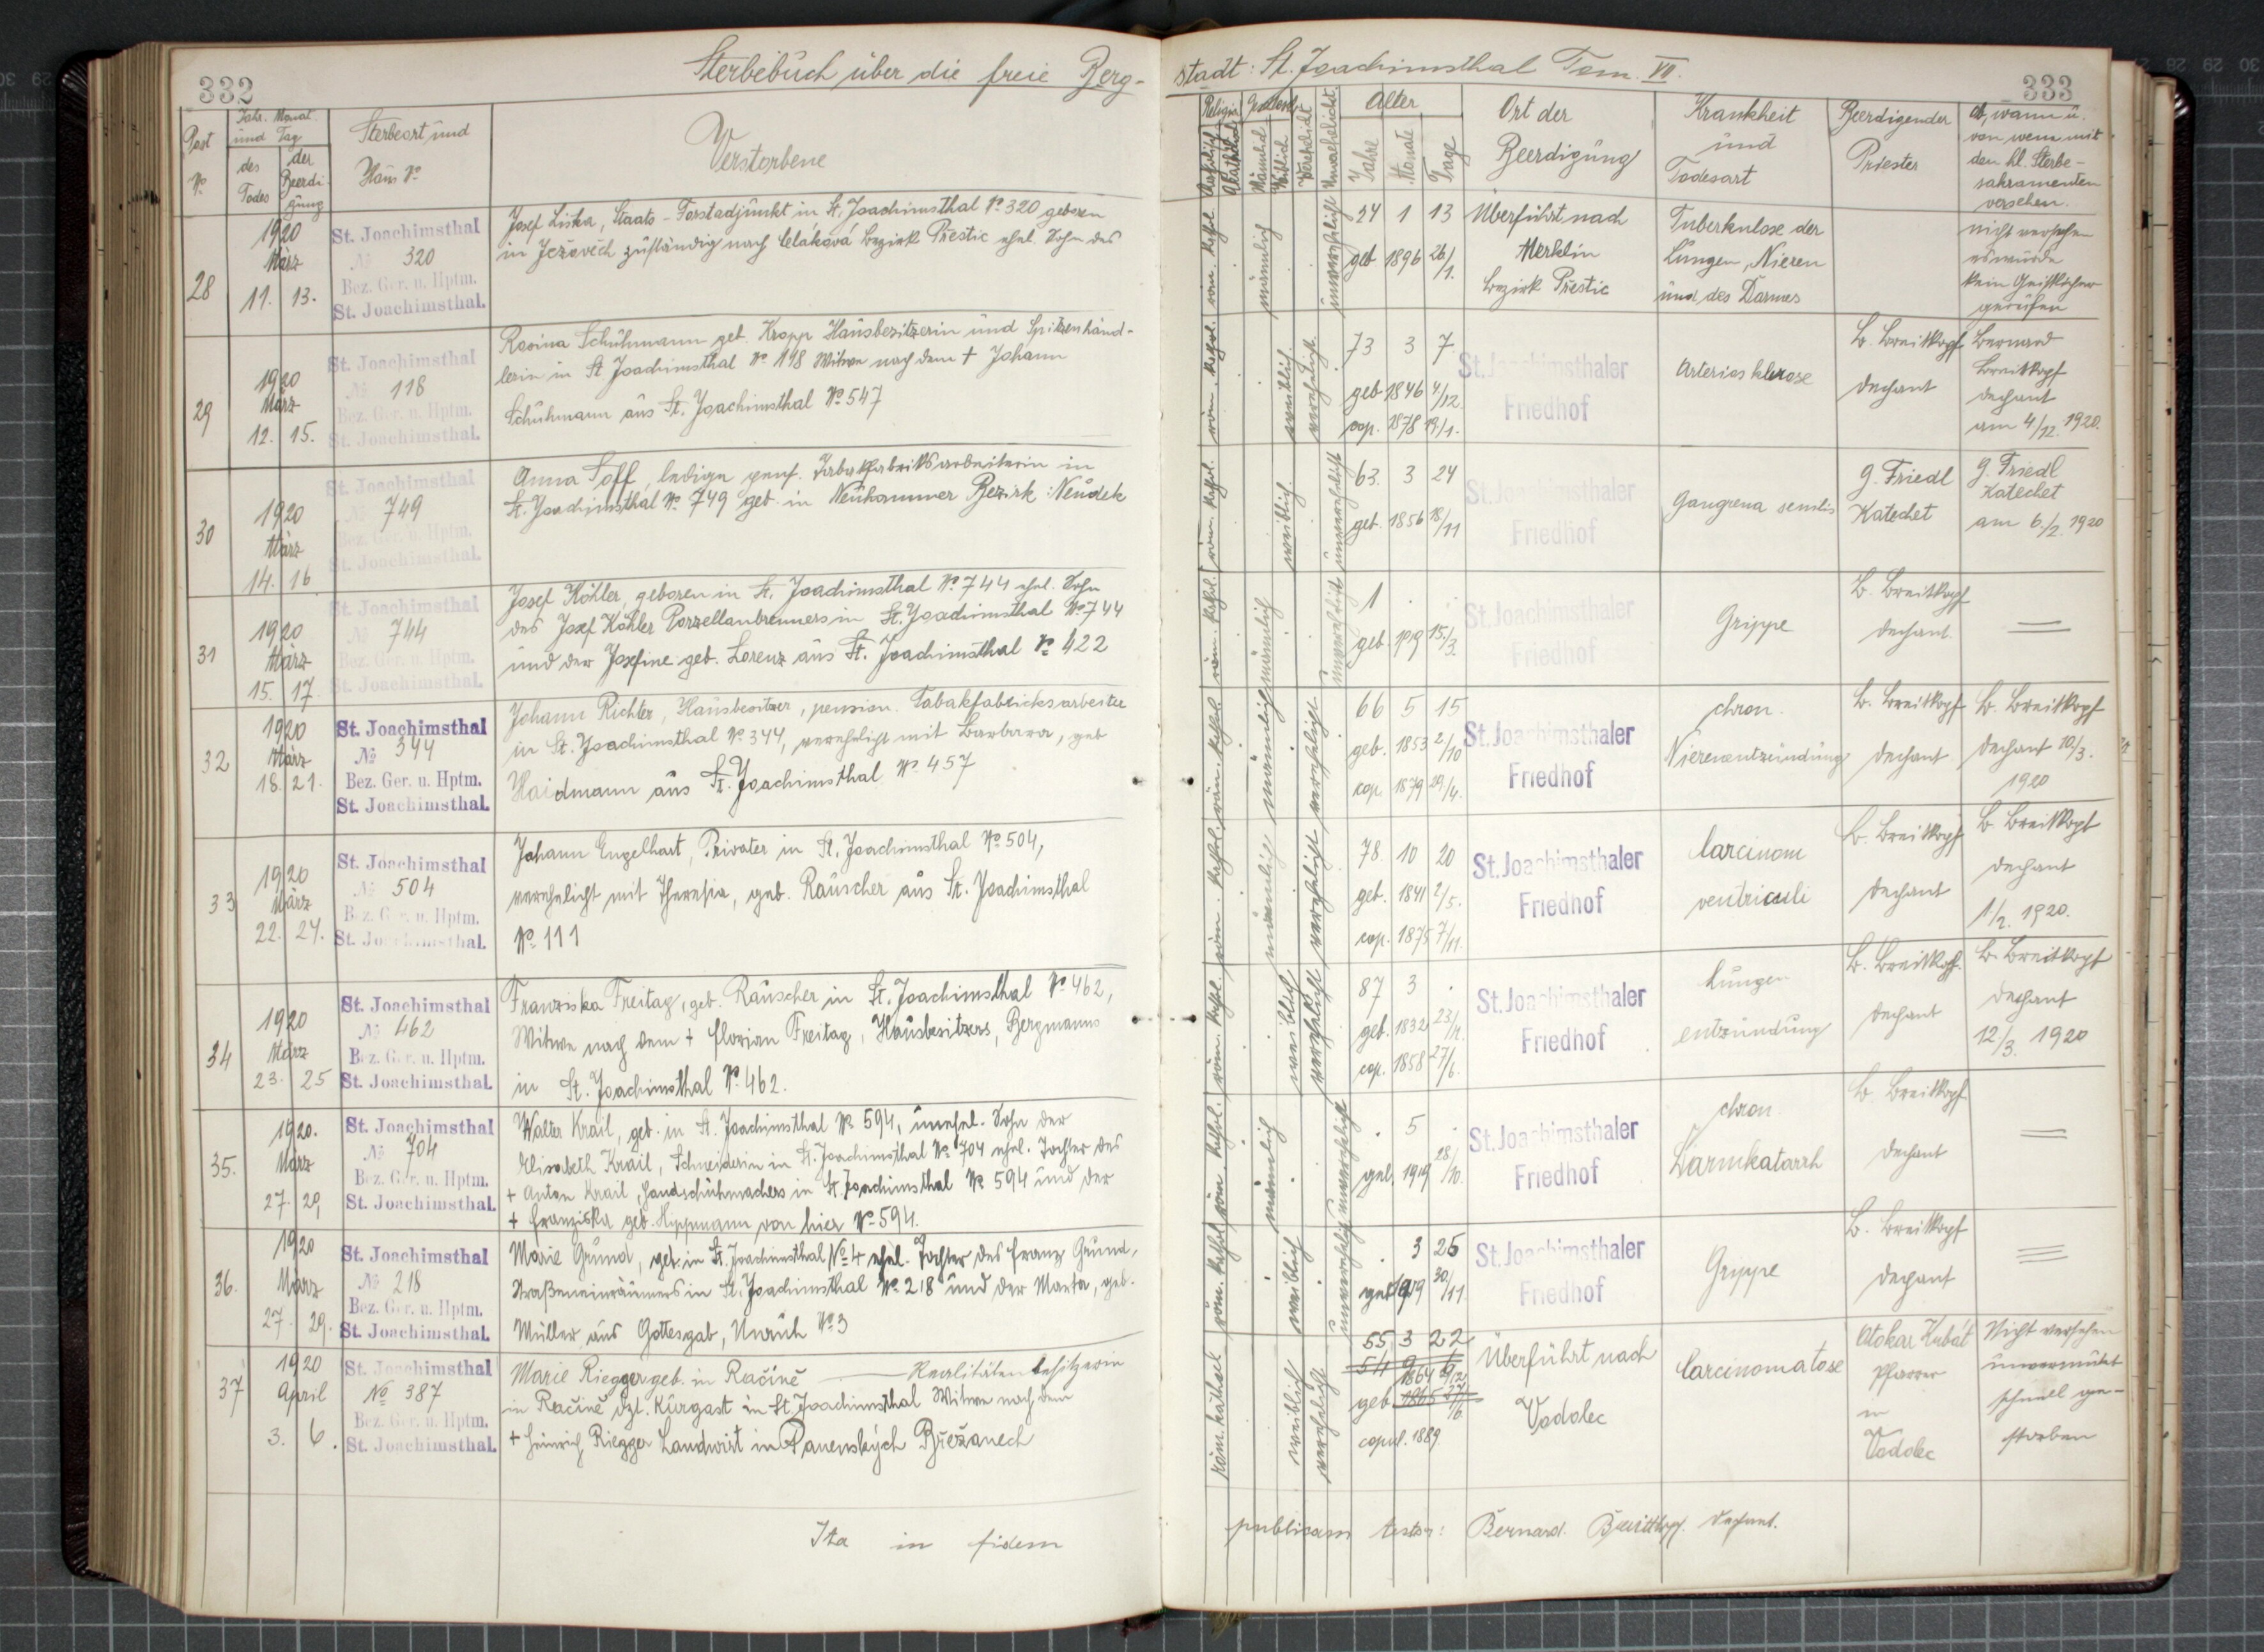 332
Sterbebuch über die freie Berg-
Post
No
Jahr. Monat
und Tag
des
Todes
der
Beerdi-
gung
Sterbeort und
Haus No
Verstorbene
28
1920
März
11. 13.
St. Joachimsthal
No 320
Bez. Ger. u. Hptm.
St. Joachimsthal.
Josef Liska, Staats-Forstadjunkt in St. Joachimsthal No 320 geboren
in Ježovech zuständig nach Celáková Bezirk Prestic ehel. Sohn des
29
1920
März
12. 15.
St. Joachimsthal
No 118
Bez. Ger. u. Hptm.
St. Joachimsthal.
Rosina Schuhmann geb. Kropp Hausbesitzerin und Spitzenhänd-
lerin in St Joachimsthal No 118 Witwe nach dem + Johann
Schuhmann aus St. Joachimsthal No 547
30
1920
März
14. 16
St. Joachimsthal
No 749
Bez. Ger. u. Hptm.
St. Joachimsthal.
Anna Soff, ledige pens. Tabakfabriksarbeiterin in
St. Joachimsthal No 749 geb. in Neuhammer Bezirk: Neudek
31
1920
März
15. 17.
St. Joachimsthal
No 744
Bez. Ger. u. Hptm.
St. Joachimsthal.
Josef Köhler, geboren in St. Joachimsthal No 744 ehel. Sohn
des Josef Köhler Porzellanbrenners in St. Joachimsthal No 744
und der Josefine geb. Lorenz aus St. Joachimsthal No 422
32
1920
März
18. 21.
St. Joachimsthal
No 344
Bez. Ger. u. Hptm.
St. Joachimsthal.
Johann Richter, Hausbesitzer, pension. Tabakfabricksarbeiter
in St. Joachimsthal No 344, verehelicht mit Barbara, geb
Haidmann aus St. Joachimsthal No 457
33
1920
März
22. 24.
St. Joachimsthal
No 504
Bez. Ger. u. Hptm.
St. Joachimsthal.
Johann Engelhart, Privater in St. Joachimsthal No 504,
verehelicht mit Theresia, geb. Rauscher aus St. Joachimsthal
No 111
34
1920
März
23. 25
St. Joachimsthal
No 462
Bez. Ger. u. Hptm.
St. Joachimsthal.
Franziska Freitag, geb. Rauscher in St. Joachimsthal No 462,
Witwe nach dem + Florian Freitag, Hausbesitzers, Bergmanns
in St. Joachimsthal No 462.
35.
1920.
März
27. 29,
St. Joachimsthal
No 704
Bez. Ger. u. Hptm.
St. Joachimsthal.
Walter Krail, geb. in St. Joachimsthal No 594, unehel. Sohn der
Elisabeth Krail, Schneiderin in St. Joachimsthal No 704 ehel. Tochter des
+ Anton Krail, Handschuhmachers in St. Joachimsthal No 594 und der
+ Franziska geb. Hippmann von hier No 594.
36.
1920
März
27. 29.
St. Joachimsthal
No 218
Bez. Ger. u. Hptm.
St. Joachimsthal.
Marie Grund, geb. in St. Joachimsthal No 4 ehel. Tochter des Franz Grund,
Straßeneinräumers in St. Joachimsthal No 218 und der Marta, geb.
Müller aus Gottesgab, Unruh No 3
37
1920
April
3. 6.
St. Joachimsthal
No 387
Bez. Ger. u. Hptm.
St. Joachimsthal.
Marie Riegger geb. in Račině — Realitätenbesitzerin
in Račině dzt. Kurgast in St. Joachimsthal Witwe nach dem
+ Heinrich Riegger Landwirt in Panenských Břežanech
Ita in fidem
333
stadt: St. Joachimsthal Tom. VII.
Religion
Katholisch
Akatholisch
Geschlecht
Männlich
Weiblich
Verehelicht
Unverehelicht
Alter
Jahre
Monate
Tage
Ort der
Beerdigung
Krankheit
und
Todesart
Beerdigender
Priester
Ob, wann u.
von wem mit
den hl. Sterbe-
sakramenten
versehen.
röm. kathol.
männlich
unverehelicht
24 1 13
geb 1896 26/1.
Überführt nach
Merklin
Bezirk Prestic
Tuberkulose der
Lungen, Nieren
und des Darmes
nicht versehen
es wurde
kein Geistlicher
gerufen
röm. kathol.
weiblich.
verehelicht.
73 3 7
geb 1846 4/12.
cop. 1878 19/1.
St. Joachimsthaler
Friedhof
Arterios klerose
B. Breitkopf
Dechant
Bernard
Breitkopf
Dechant
am 4/12. 1920.
röm. kathol.
weiblich.
unverehelicht
63. 3 24
geb. 1856 18/11
St. Joachimsthaler
Friedhof
Gangrena senilis
G. Friedl
Katechet
G. Friedl
Katechet
am 6./2. 1920
röm. kathol.
männlich
unverehelicht
1 . .
geb. 1919 15./3.
St. Joachimsthaler
Friedhof
Grippe
B. Breitkopf
Dechant.
röm. kathol.
männlich
verehelicht.
66 5 15
geb. 1853 2/10
cop. 1879 29/4.
St. Joachimsthaler
Friedhof
chron.
Nierenentzündung
B. Breitkopf
Dechant
B. Breitkopf
Dechant 10/3.
1920
röm. kathol.
männlich
verehelicht
78. 10 20
geb. 1841 2/5.
cop. 1875 7/11.
St. Joachimsthaler
Friedhof
Carcinom
ventriculi
B. Breitkopf
Dechant
B. Breitkopf
Dechant
1/2. 1920.
röm. kathol.
weiblich
verehelicht
87 3 .
geb. 1832
cop. 1858 27/6.
St. Joachimsthaler
Friedhof
Lungen
entzündung
B. Breitkopf.
Dechant
B. Breitkopf
Dechant
12./3. 1920
röm. kathol.
männlich
unverehelicht
. 5 .
geb. 1919 28/10.
St. Joachimsthaler
Friedhof
chron.
Darmkatarrh
B. Breitkopf
Dechant
röm. kathol
weiblich
unverehelicht
. 3 25
geb 1919 30/11
St. Joachimsthaler
Friedhof
Grippe
B. Breitkopf
Dechant
röm. kathol
weiblich
verehelicht
55, 3 22
54 9
1864
geb. 1865
copul. 1889.
Überführt nach
Vodolec
Carcinomatose
Otokar Kubát
Pfarrer
in
Vodolec
Nicht versehen
unvermutet
schnell ge-
storben
publicam testor: Bernard Breitkopf. Dechant.